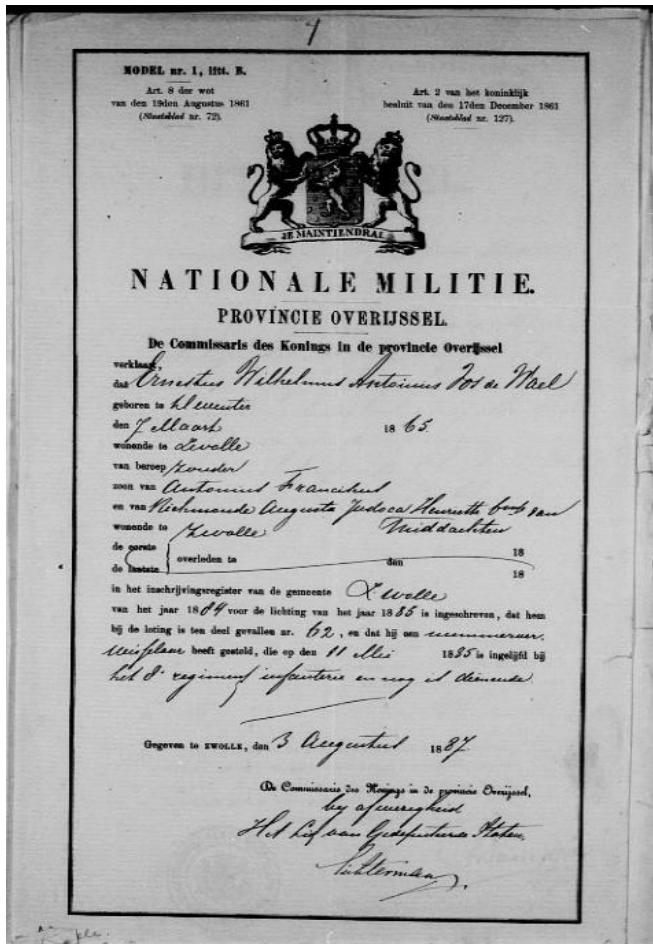 1
MODEL nr. 1, litt. B.
Art. 8 der wet
van den 19den Augustus 1861
(Staatsblad nr. 72).
Art. 2 van het koninklijk
besluit van den 17den December 1861
(Staatsblad nr. 127).
JE MAINTIENDRAI
NATIONALE MILITIE.
PROVINCIE OVERIJSSEL.
De Commissaris des Konings in de provincie Overijssel
verklaart,
dat Ernestus Wilhelmus Antonius Jos de Wael
geboren te Deventer
den 7 Maart 1865.
wonende te Zwolle
van beroep zonder
zoon van Antonius Franciskus
en van Richmonde Augusta Judoca Henriette van
Middachten
wonende te Zwolle
de eerste overleden te den 18
de laatste 18
in het inschrijvingsregister van de gemeente Zwolle
van het jaar 1884 voor de lichting van het jaar 1885 is ingeschreven, dat hem
bij de loting is ten deel gevallen nr. 62, en dat hij een nummerver-
wisselaar heeft gesteld, die op den 11 Mei 1885 is ingelijfd bij
het 8e regiment infanterie en nog is dienende
Gegeven te ZWOLLE, den 3 Augustus 1887
De Commissaris des Konings in de provincie Overijssel,
bij afwezigheid
Het Lid van Gedeputeerde Staten,